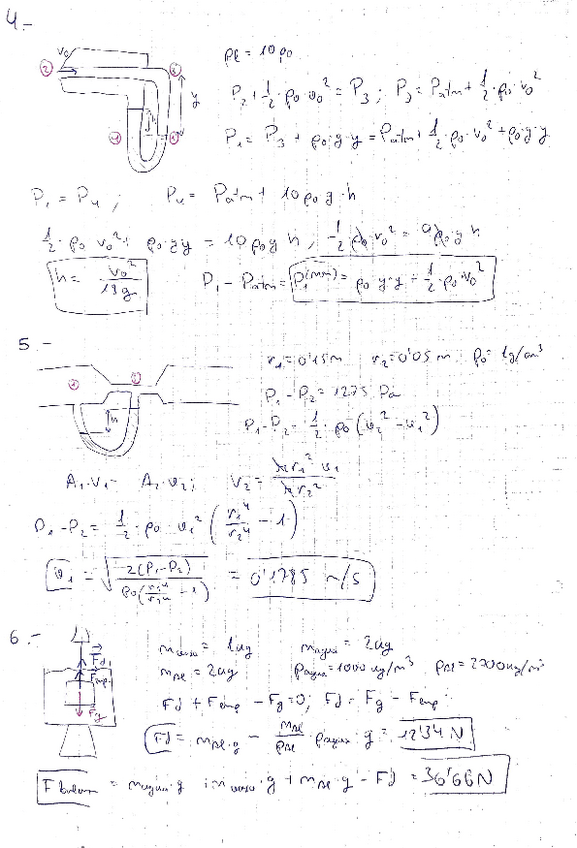 4.-
v₀
② ③
y
h
④ ①
ρl = 10ρ₀
P₂ + 1/2 · ρ₀ · v₀² = P₃ ; P₃ = Patm + 1/2 · ρ₀ · v₀²
P₁ = P₃ + ρ₀ · g · y = Patm + 1/2 · ρ₀ · v₀² + ρ₀ · g · y
P₁ = P₄ ; P₄ = Patm + 10ρ₀g · h
1/2 · ρ₀ v₀² + ρ₀ · g y = 10ρ₀g h , 1/2 ρ₀ v₀² = 9ρ₀ · g h
h = v₀²/18g P₁ - Patm = P₁(man) = ρ₀ g · y + 1/2 · ρ₀ · v₀²
5.-
① ②
h
r₁ = 0'15m r₂ = 0'05 m ρ₀ = 1g/cm³
P₁ - P₂ = 1275 Pa
P₁ - P₂ = 1/2 · ρ₀ (v₂² - v₁²)
A₁·V₁ = A₂·v₂ ; V₂ = πr₁² v₁/πr₂²
P₁ - P₂ = 1/2 · ρ₀ · v₁² (r₁⁴/r₂⁴ - 1)
v₁ = √(2(P₁-P₂)/ρ₀(r₁⁴/r₂⁴ - 1)) = 0'1785 m/s
6.-
Fd
Femp
Fg
m vaso = 1kg m agua = 2kg
m Al = 2kg ρagua = 1000 kg/m³ ρAl = 2700 kg/m³
Fd + Femp - Fg = 0 ; Fd = Fg - Femp
Fd = mAl · g - mAl/ρAl · ρagua · g = 12'34 N
F balanza = m agua · g + m vaso · g + mAl · g - Fd = 36'66N